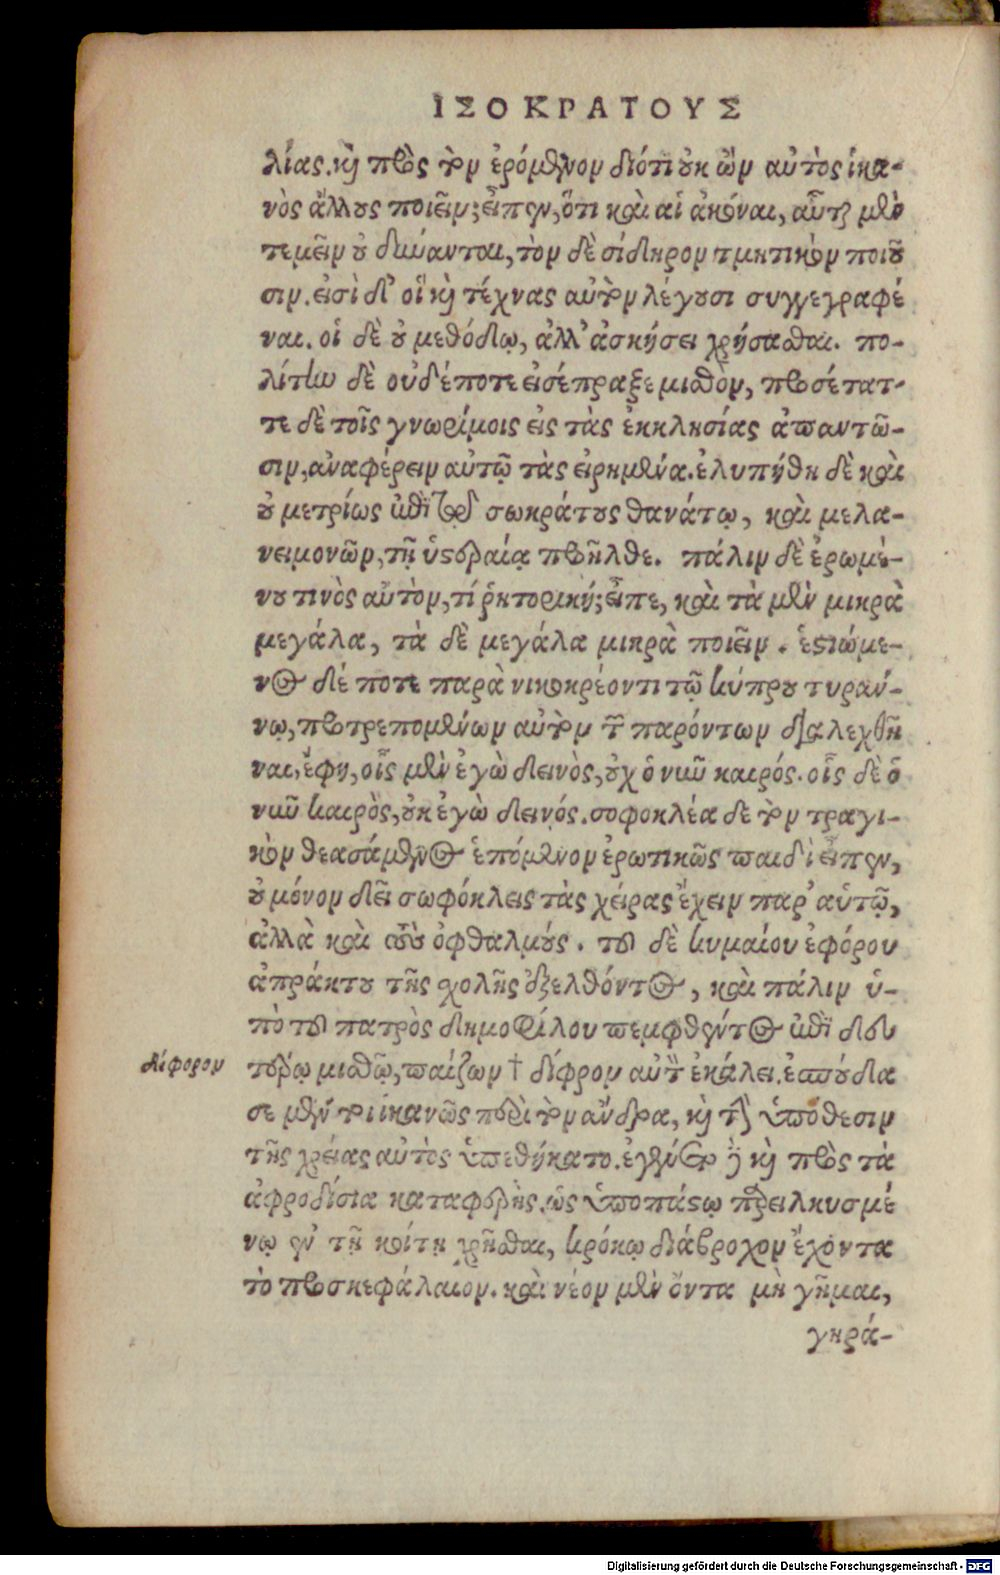 ΙΣΟΚΡΑΤΟΥΣ
λίας. καὶ πρὸς τὸν ἐρόμενον διότι οὐκ ὢν αὐτὸς ἱκα-
νὸς ἄλλους ποιεῖν; εἶπεν, ὅτι καὶ αἱ ἀκόναι, αὗται μὲν
τεμεῖν οὐ δύνανται, τὸν δὲ σίδηρον τμητικὸν ποιοῦ
σιν. εἰσὶ δ' οἳ καὶ τέχνας αὐτὸν λέγουσι συγγεγραφέ
ναι. οἱ δὲ οὐ μεθόδῳ, ἀλλ' ἀσκήσει χρήσασθαι. πο-
λίτην δὲ οὐδέποτε εἰσέπραξε μισθὸν, προσέτατ-
τε δὲ τοῖς γνωρίμοις εἰς τὰς ἐκκλησίας ἀπαντῶ-
σιν, ἀναφέρειν αὐτῷ τὰς εἰρημένα. ἐλυπήθη δὲ καὶ
οὐ μετρίως ἐπὶ τῷ σωκράτους θανάτῳ, καὶ μελα-
νειμονῶν, τῇ ὑστεραίᾳ προῆλθε. πάλιν δὲ ἐρωμέ-
νου τινὸς αὐτὸν, τί ῥητορική; εἶπε, καὶ τὰ μὲν μικρὰ
μεγάλα, τὰ δὲ μεγάλα μικρὰ ποιεῖν. ἑστιώμε-
νος δέ ποτε παρὰ νικοκρέοντι τῷ κύπρου τυράν-
νῳ, προτρεπομένων αὐτὸν τῶν παρόντων διαλεχθῆ
ναι, ἔφη, οἷς μὲν ἐγὼ δεινὸς, οὐχ ὁ νῦν καιρός. οἷς δὲ ὁ
νῦν καιρὸς, οὐκ ἐγὼ δεινός. σοφοκλέα δὲ τὸν τραγι-
κὸν θεασάμενος ἑπόμενον ἐρωτικῶς παιδὶ εἶπεν,
οὐ μόνον δεῖ σωφόκλεις τὰς χεῖρας ἔχειν παρ' αὑτῷ,
ἀλλὰ καὶ τοὺς ὀφθαλμούς. τοῦ δὲ κυμαίου ἐφόρου
ἀπράκτου τῆς σχολῆς ἐξελθόντος, καὶ πάλιν ὑ-
πὸ τοῦ πατρὸς δημοφίλου πεμφθέντος ἐπὶ δευ
τέρῳ μισθῷ, παίζων † δίφρον αὐτὸν ἐκάλει. ἐσπούδα
δίφορον
σε μέν τοι ἱκανῶς περὶ τὸν ἄνδρα, καὶ τὴν ὑπόθεσιν
τῆς χρείας αὐτὸς ὑπεθήκατο. ἐγένετο δὲ καὶ πρὸς τὰ
ἀφροδίσια καταφερὴς. ὡς ὑποπάστῳ παρειλκυσμέ
νῳ ἐν τῇ κοίτῃ χρῆσθαι, κρόκῳ διάβροχον ἔχοντα
τὸ προσκεφάλαιον. καὶ νέον μὲν ὄντα μὴ γῆμαι,
γηρά-
Digitalisierung gefördert durch die Deutsche Forschungsgemeinschaft - DFG